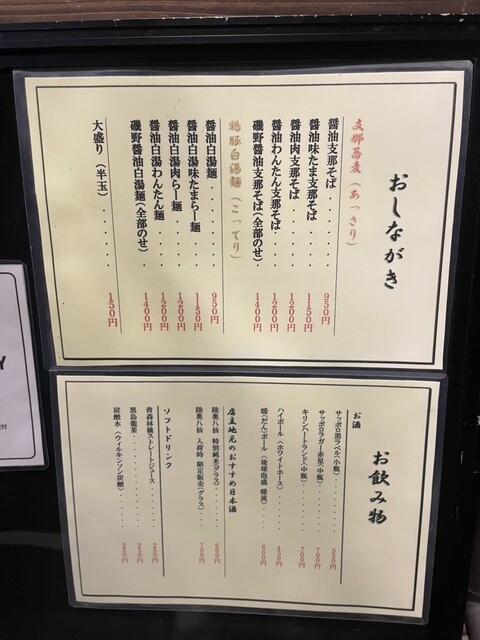 おしながき
支那蕎麦（あっさり）
醤油支那そば・・・・・・・950円
醤油味たま支那そば・・・・1150円
醤油肉支那そば・・・・・・1200円
醤油わんたん支那そば・・・1200円
磯野醤油支那そば(全部のせ)・1400円
鶏豚白湯麺（こってり）
醤油白湯麺・・・・・・・・950円
醤油白湯味たまらー麺・・・1150円
醤油白湯肉らー麺・・・・・1200円
醤油白湯わんたん麺・・・・1200円
磯野醤油白湯麺(全部のせ)・1400円
大盛り（半玉）・・・・・・150円
お飲み物
お酒
サッポロ黒ラベル(小瓶)・・・・
サッポロラガー赤星(中瓶)・・・700円
キリンハートランド(中瓶)・・・700円
ハイボール（ホワイトホース）・・・
暖(だん)ボール（琉球泡盛 暖流）・・600円
店主地元のおすすめ日本酒
陸奥八仙 特別純米(グラス)・・・600円
陸奥八仙 入荷時 限定販売(グラス)・・700円
ソフトドリンク
青森林檎ストレートジュース・・・・250円
黒烏龍茶・・・・・・・・250円
炭酸水（ウィルキンソン炭酸）・・・250円